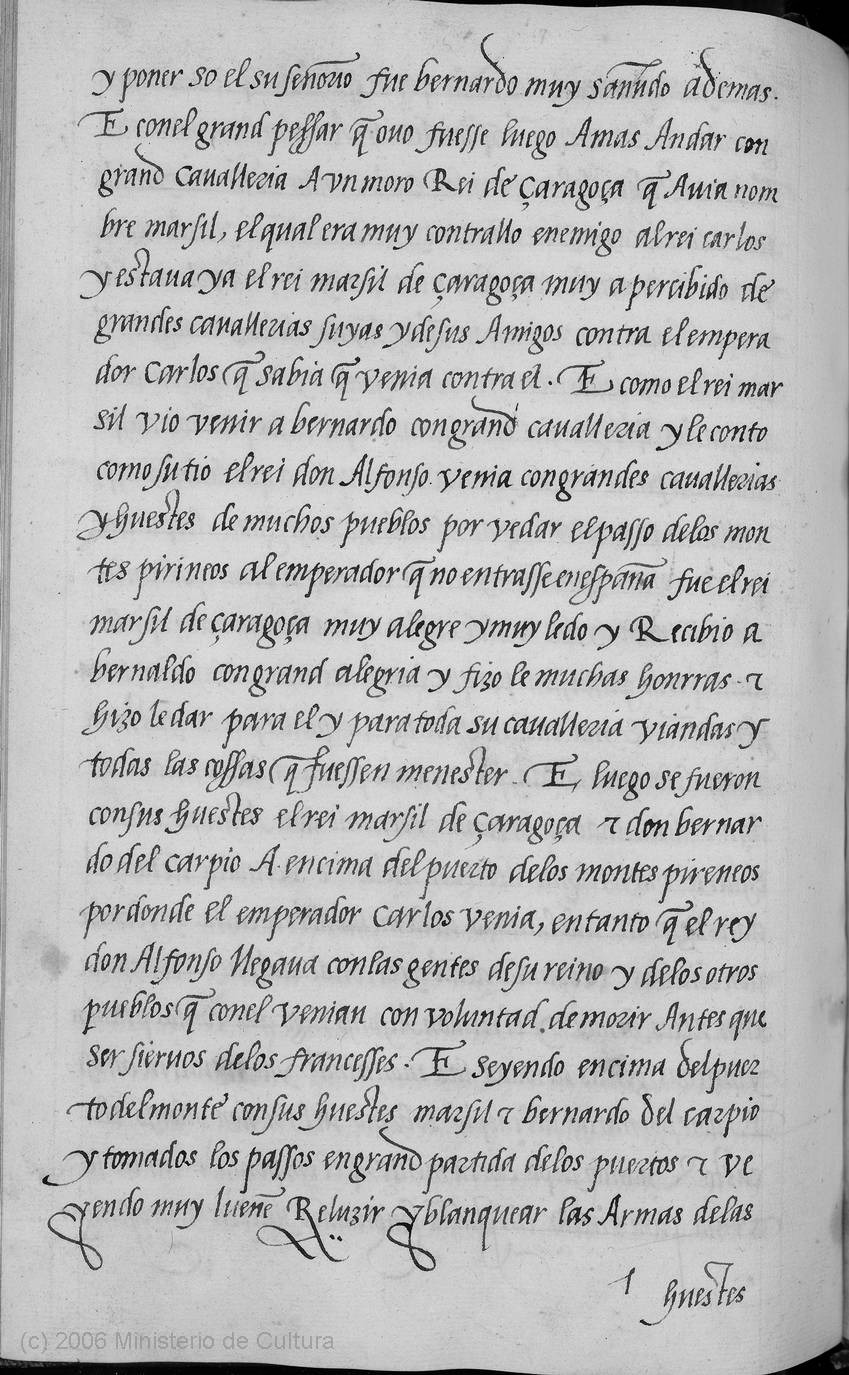 y poner so el su señorio fue bernardo muy sañudo ademas.
E conel grand pessar q̃ ouo fuesse luego Amas Andar con
grand Cavalleria A vn moro Rei de Çaragoça q̃ Auia nom
bre marsil, el qual era muy contrallo enemigo al rei carlos
y estaua ya el rei marsil de Çaragoça muy apercibido de
grandes cauallerias suyas y de sus Amigos contra el empera
dor Carlos q̃ sabia q̃ venia contra el. E como el rei mar
sil vio venir a bernardo con grand cavalleria y le conto
como su tio el rei don Alfonso venia con grandes cavallerias
y huestes de muchos pueblos por vedar el passo delos mon
tes pirineos al emperador q̃ no entrasse en españa fue el rei
marsil de çaragoça muy alegre y muy ledo y Recibio a
bernaldo con grand alegria y fizo le muchas honrras ⁊
hizo le dar para el y para toda su cavalleria viandas y
todas las cossas q̃ fuessen menester. E luego se fueron
con sus huestes el rei marsil de Çaragoça ⁊ don bernar
do del carpio A encima del puerto delos montes pireneos
por donde el emperador Carlos venia, entanto q̃ el rey
don Alfonso llegaua con las gentes de su reino y delos otros
pueblos q̃ conel venian con voluntad de morir Antes que
ser sieruos delos francesses. E seyendo encima del puer
to del monte con sus huestes marsil ⁊ bernardo del carpio
y tomados los passos en grand partida delos puertos ⁊ ve
yendo muy lueñe Reluzir y blanquear las Armas delas
huestes
(c) 2006 Ministerio de Cultura